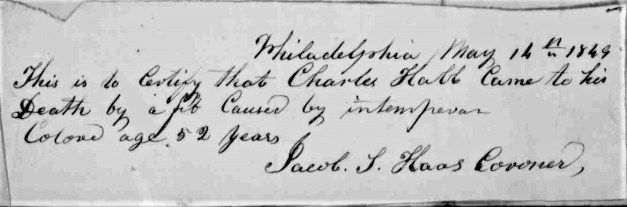 Philadelphia May 14th 1849
This is to Certify that Charles Hall Came to his
Death by a fit Caused by intemperan
Colord age 52 Years
Jacob. S. Haas Coroner,